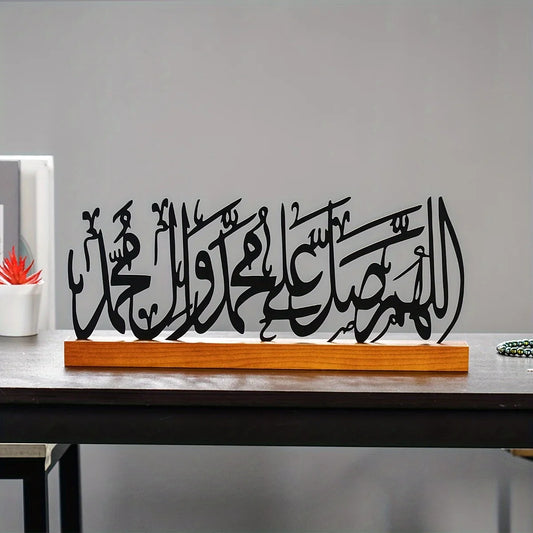 اللهم صل على محمد وال محمد